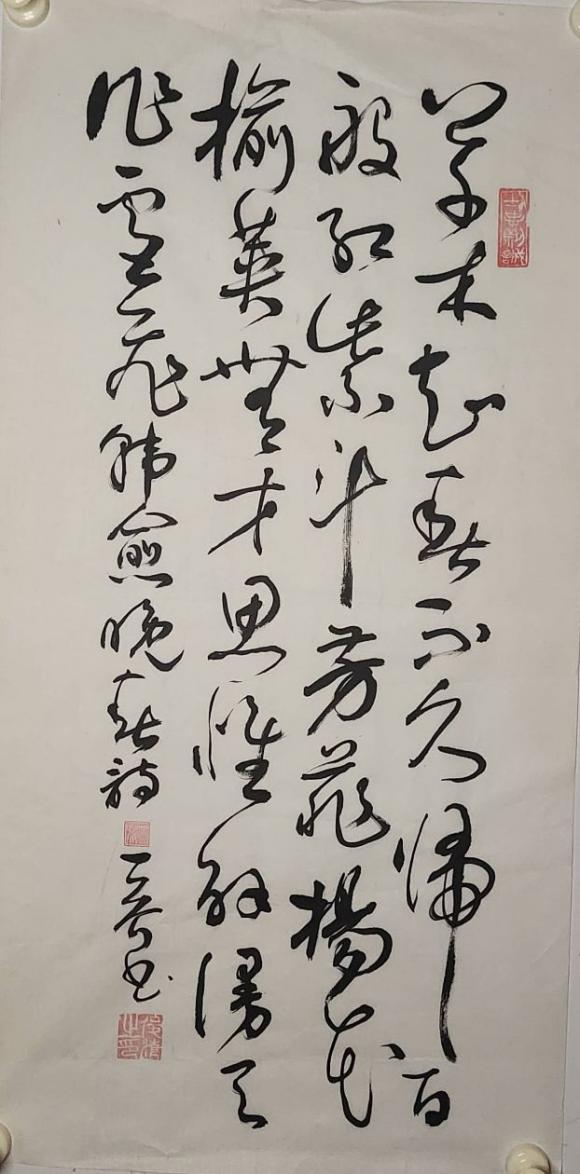 草木知春不久歸百
般紅紫斗芳菲楊花
榆莢無才思惟解漫天
作雪飛韓愈晚春詩
書